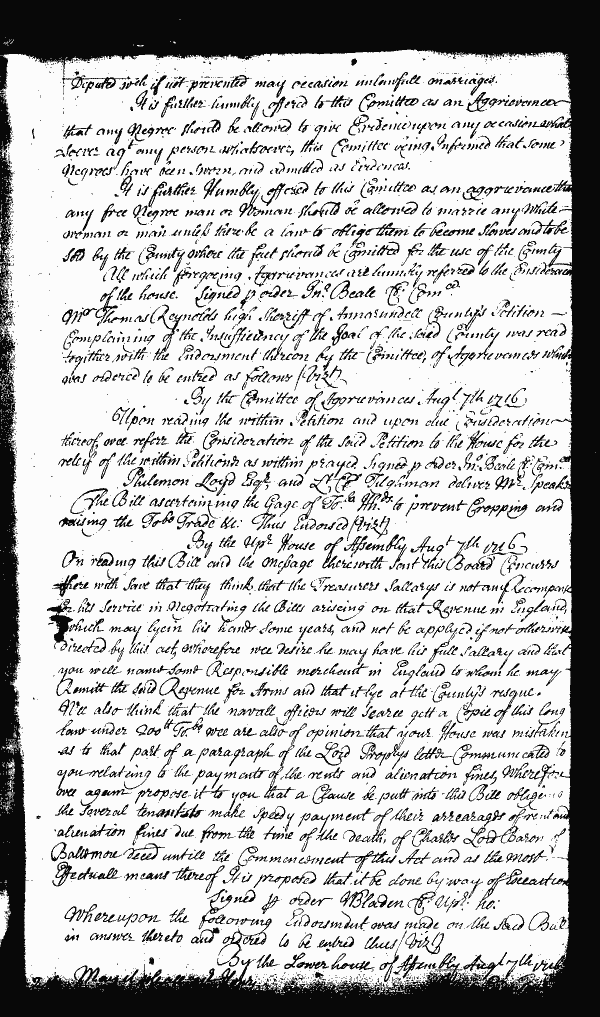 Deputed wch if not prevented may occasion unlawfull marriages.
It is further humbly offered to this Comittee as an Aggrievance
that any Negroe should be allowed to give Evidence upon any occasion what
soever agt any person whatsoever, this Comittee being Informed that some
Negroes have been sworn and admitted as Evidences.
It is further Humbly offered to this Comittee as an aggrievance that
any free Negroe man or Woman should be allowed to marrie any White
woman or man unless there be a law to oblige them to become Slaves and to be
sold by the County where the fact should be Comitted for the use of the County
All which foregoing Aggrievances are humbly referred to the Consideracon
of the house. Signed p order Jno. Beale Cl. Com
Mr Thomas Reynolds high Sherriff of Annarundell County's Petition
Complaining of the Insufficiency of the Goal of the said County was read
together with the Endorsment thereon by the Comittee, of Aggrievances which
was ordered to be entred as follows (Vizt)
By the Comittee of Aggrievances Augt 7th 1716
Upon reading the within Petition and upon due Consideration
thereof wee referr the Consideration of the said Petition to the House for the
releif of the within Petitioners as within prayed. Signed p order Jno. Beale Cl. Com
Philemon Loyd Esqr. and Lt. Col Tilghman deliver Mr. Speaker
The Bill ascertaining the Gage of Tob. Hhds to prevent Cropping and
raising the Tobo Trade &c. Thus Endorsed (Vizt)
By the Upr. House of Assembly Augt 7th 1716
On reading this Bill and the Message therewith sent this Board Concurrs
there with save that they think that the Treasurers Sallarys is not any Recompence
for his service in Negotiating the Bills arising on that Revenue in England,
which may lye in his hands some years, and not be applyed if not otherwise
directed by this act, wherefore wee desire he may have his full sallary and that
you will name some Responsible merchant in England to whom he may
Remitt the said Revenue for Arms and that it lye at the County's resque.
Wee also think that the navall officers will scarce gett a Copie of this long
law under 200tt Tobo wee are also of opinion that your House was mistaken
as to that part of a paragraph of the Lord Propry's letter Communicated to
you relating to the payments of the rents and alienation fines, Wherefore
wee again propose it to you that a Clause be putt into this Bill obliging
the several tenants to make speedy payment of their arrearages of rent and
alienation fines due from the time of the death, of Charles Lord Baron of
Baltemore Deced untill the Commencement of this Act and as the most
Effectuall means thereof It is proposed that it be done by way of Execution
Signed p order WBladen Cl. Upr. ho:
Whereupon the following Endorsment was made on the said Bill
in answer thereto and ordered to be entred thus (Vizt)
By the Lower house of Assembly Augt 7th 1716
May it please